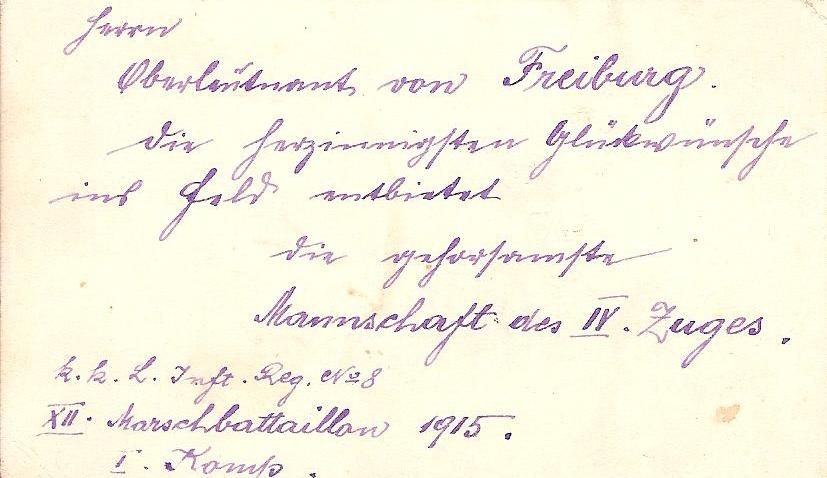 Herrn
Oberleutnant von Freiburg.
die herzinnigsten Glükwünsche
ins Feld entbietet
die gehorsamste
Mannschaft des IV. Zuges.
k. k. L. Inft. Reg. No 8
XII. Marschbattaillon 1915.
I. Komp.